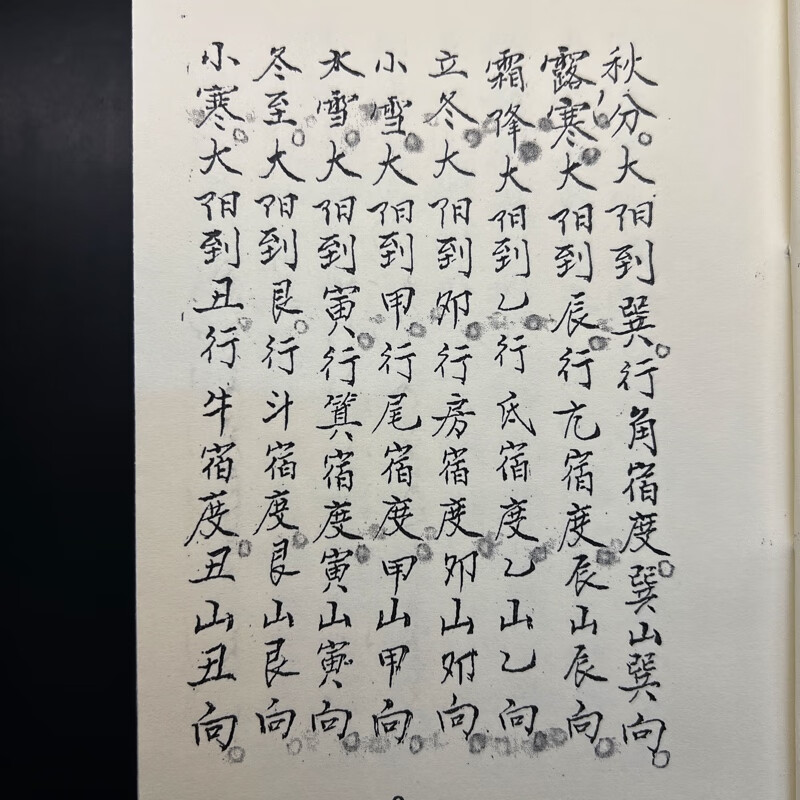 秋分。大阳到巽。行角宿度。巽山巽向。
露寒。大阳到辰。行亢宿度。辰山辰向。
霜降。大阳到乙。行氐宿度。乙山乙向。
立冬。大阳到卯。行房宿度。卯山卯向。
小雪。大阳到甲。行尾宿度。甲山甲向。
大雪。大阳到寅。行箕宿度。寅山寅向。
冬至。大阳到艮。行斗宿度。艮山艮向。
小寒。大阳到丑。行牛宿度。丑山丑向。